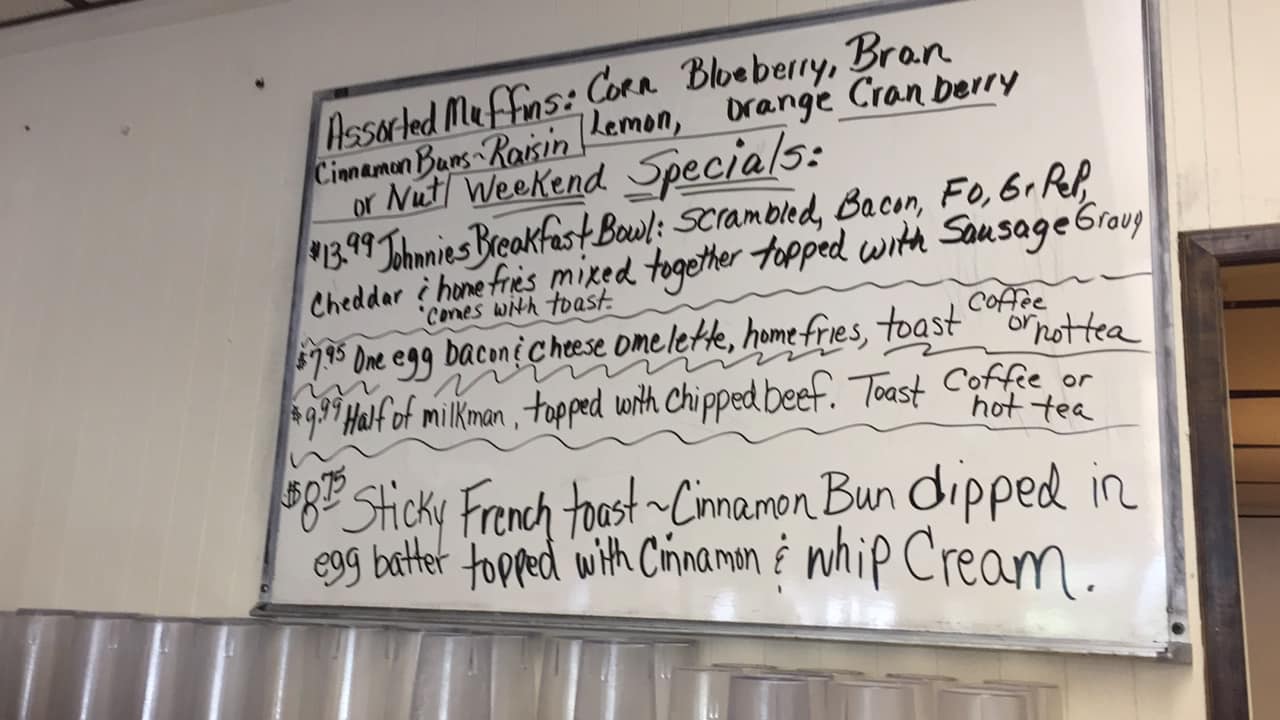 Assorted Muffins: Corn Blueberry, Bran
Cinnamon Buns~Raisin Lemon, Orange Cranberry
or Nut Weekend Specials:
$13.99 Johnnies Breakfast Bowl: Scrambled, Bacon, FO, Gr Pep,
Cheddar & homefries mixed together topped with Sausage Gravy
comes with toast.
$7.95 One egg bacon & cheese omelette, homefries, toast Coffee
or hot tea
$9.99 Half of milkman, topped with Chipped beef. Toast Coffee or
hot tea
$8.75 Sticky French toast ~ Cinnamon Bun dipped in
egg batter topped with Cinnamon & whip Cream.